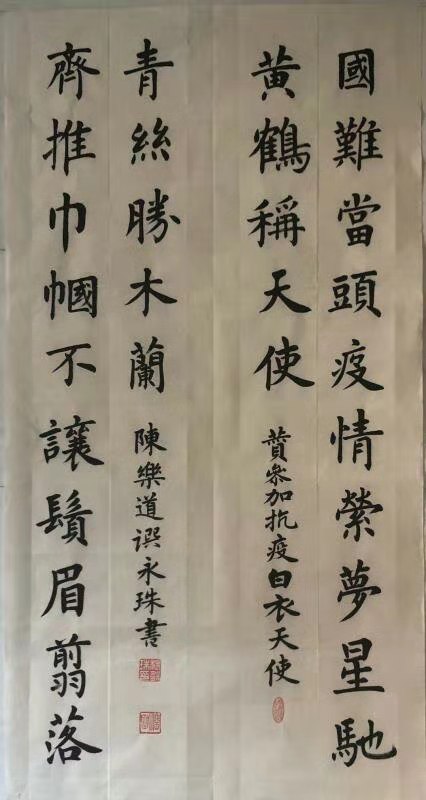 國難當頭疫情縈夢星馳
黄鶴稱天使
賛參加抗疫白衣天使
齊推巾幗不讓鬚眉翦落
青絲勝木蘭
陳樂道譔永珠書